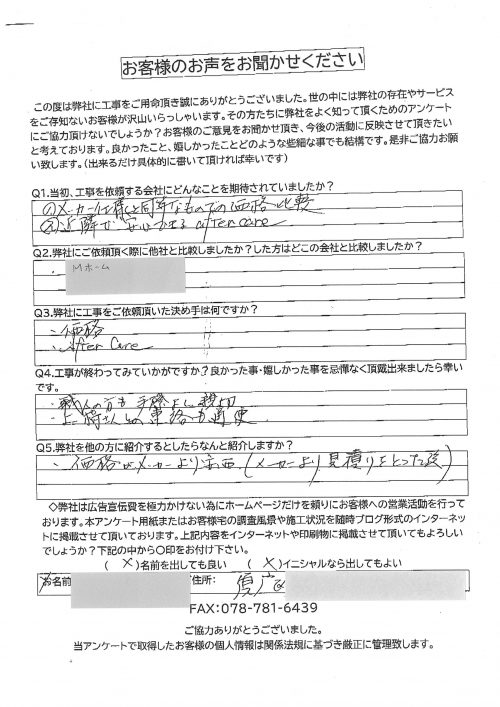 お客様のお声をお聞かせください
この度は弊社に工事をご用命頂き誠にありがとうございました。世の中には弊社の存在やサービス
をご存知ないお客様が沢山いらっしゃいます。その方たちに弊社をよく知って頂くためのアンケート
にご協力頂けないでしょうか?お客様のご意見をお聞かせ頂き、今後の活動に反映させて頂きたい
と考えております。良かったこと、嬉しかったことどのような些細な事でも結構です。是非ご協力お願
い致します。(出来るだけ具体的に書いて頂ければ幸いです)
Q1.当初、工事を依頼する会社にどんなことを期待されていましたか?
①メーカー仕様と同等なもので価格比較
②近隣で安心できるafter care
Q2.弊社にご依頼頂く際に他社と比較しましたか?した方はどこの会社と比較しましたか?
・Mホーム
Q3.弊社に工事をご依頼頂いた決め手は何ですか?
・価格
・After Care
Q4.工事が終わってみていかがですか?良かった事・嬉しかった事を忌憚なく頂戴出来ましたら幸い
です。
・職人の方も手際よし親切
・上崎さんの連絡も適便
Q5.弊社を他の方に紹介するとしたらなんと紹介しますか?
・価格がメーカーより安価(メーカーより見積りをとった後)
◇弊社は広告宣伝費を極力かけない為にホームページだけを頼りにお客様への営業活動を行って
おります。本アンケート用紙またはお客様宅の調査風景や施工状況を随時ブログ形式のインターネッ
トに掲載させて頂いております。上記内容をインターネットや印刷物に掲載させて頂いてもよろしい
でしょうか?下記の中から〇印をお付け下さい。
(×)名前を出しても良い (×)イニシャルなら出してもよい
お名前 ご住所: 
FAX:078-781-6439
ご協力ありがとうございました。
当アンケートで取得したお客様の個人情報は関係法規に基づき厳正に管理致します。